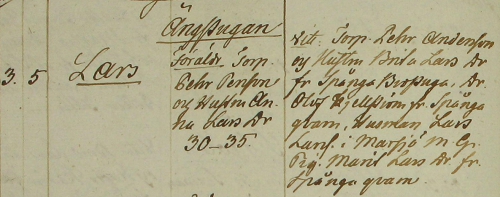 Ängstugan
3. 5 Lars
Föräldr. Torp.
Pehr Persson
og Hustru An-
na Lars Dr
30–35.
Vitt. Torp. Pehr Anderson
og Hustru Brita Lars Dr
fr Spånga Brostuga, Dr.
Olof Kjellström fr. Spånga
qvarn, Husman Lars
Lars. i Marsjö m Gr.
Pig. Marit Lars Dr. fr.
Spånga qvarn